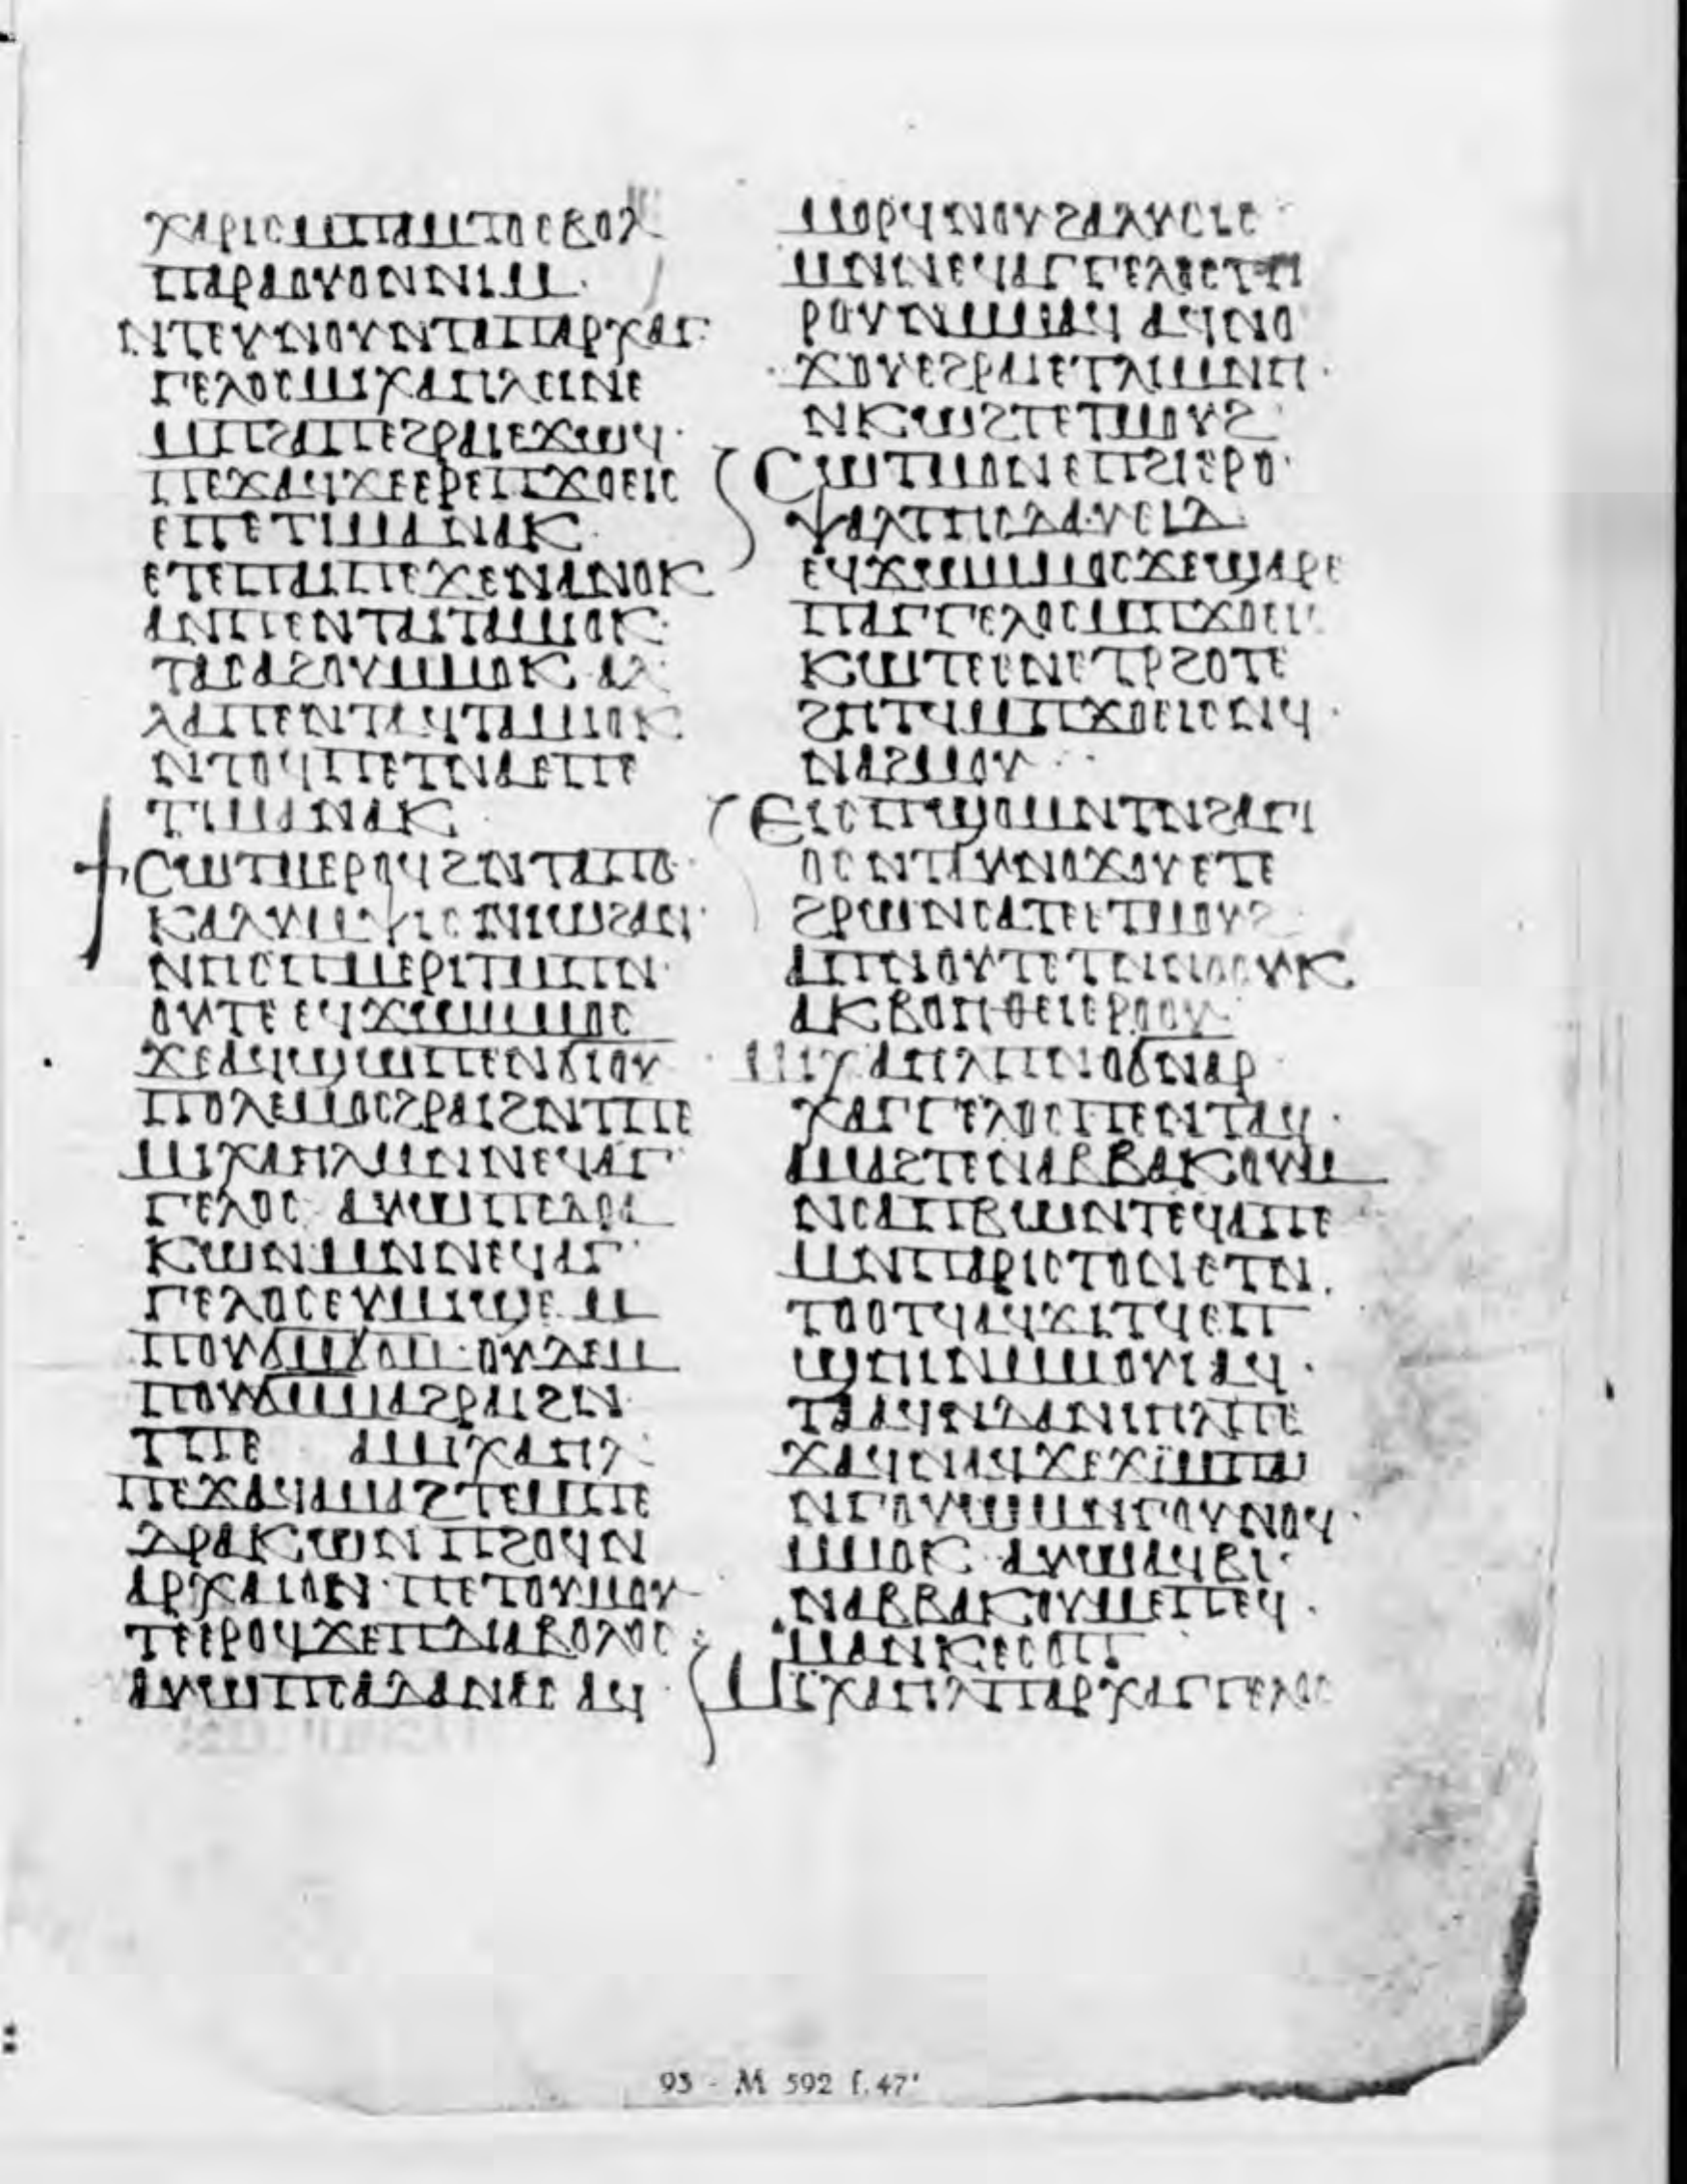 ⲭⲁⲣⲓⲥⲙⲡⲙⲧⲟⲉⲃⲟⲗ
ⲡⲁⲣⲁⲟⲩⲟⲛⲛⲓⲙ·
ⲛⲧⲉⲩⲛⲟⲩⲛⲧⲁⲡⲁⲣⲭⲁⲅ
ⲅⲉⲗⲟⲥⲙⲓⲭⲁⲏⲗⲉⲓⲛⲉ
ⲙⲡϩⲁⲡⲉϩⲣⲁⲓⲉϫⲱϥ·
ⲡⲉϫⲁϥϫⲉⲉⲣⲉⲡϫⲟⲉⲓⲥ
ⲉⲡⲉⲧⲓⲙⲁⲛⲁⲕ·
ⲉⲧⲉⲡⲁⲓⲡⲉϫⲉⲛⲁⲛⲟⲕ
ⲁⲛⲡⲉⲛⲧⲁⲓⲧⲁⲙⲓⲟⲕ·
ⲧⲁⲥⲁϩⲟⲩⲙⲙⲟⲕ· ⲁⲗ
ⲗⲁⲡⲉⲛⲧⲁϥⲧⲁⲙⲓⲟⲕ
ⲛⲧⲟϥⲡⲉⲧⲛⲁⲉⲡⲉ
ⲧⲓⲙⲁⲛⲁⲕ
ⲥⲱⲧⲙⲉⲣⲟϥϩⲛⲧⲁⲡⲟ
ⲕⲁⲗⲩⲙⲯⲓⲥⲛⲓⲱϩⲁⲛ
ⲛⲏⲥⲡⲙⲉⲣⲓⲧⲙⲡⲛ
ⲟⲩⲧⲉⲉϥϫⲱⲙⲙⲟⲥ
ϫⲉⲁϥϣⲱⲡⲉⲛϭⲓⲟⲩ
ⲡⲟⲗⲉⲙⲟⲥϩⲣⲁⲓϩⲛⲧⲡⲉ
ⲙⲓⲭⲁⲏⲗⲙⲛⲛⲉϥⲁⲅ
ⲅⲉⲗⲟⲥ ⲁⲩⲱⲡⲉⲇⲣⲁ
ⲕⲱⲛⲙⲛⲛⲉϥⲁⲅ
ⲅⲉⲗⲟⲥⲉⲩⲙⲓϣⲉ ⲙ
ⲡⲟⲩϭⲙϭⲟⲙ· ⲟⲩⲇⲉⲙ
ⲡⲟⲩϭⲙⲙⲁϩⲣⲁⲓϩⲛ
ⲧⲡⲉ ⲁⲙⲓⲭⲁⲏⲗ
ⲡⲉϫⲁϥⲁⲙⲁϩⲧⲉⲙⲡⲉ
ⲇⲣⲁⲕⲱⲛ ⲡϩⲟϥⲛ
ⲁⲣⲭⲁⲓⲟⲛ· ⲡⲉⲧⲟⲩⲙⲟⲩ
ⲧⲉⲉⲣⲟϥϫⲉⲡⲇⲓⲁⲃⲟⲗⲟⲥ
ⲁⲩⲱⲡⲥⲁⲇⲁⲛⲁⲥ ⲁϥ
ⲙⲟⲣϥⲛⲟⲩϩⲁⲗⲩⲥⲓⲥ
ⲙⲛⲛⲉϥⲁⲅⲅⲉⲗⲟⲥⲧⲏ
ⲣⲟⲩⲛⲙⲙⲁϥ ⲁϥⲛⲟ
ϫⲟⲩⲉϩⲣⲁⲓⲉⲧⲗⲓⲙⲛⲏ·
ⲛⲕⲱϩⲧⲉⲧⲙⲟⲩϩ
ⲥⲱⲧⲙⲟⲛⲉⲡϩⲓⲉⲣⲟ·
ⲯⲁⲗⲧⲏⲥⲇⲁⲩⲉⲓⲇ
ⲉϥϫⲱⲙⲙⲟⲥϫⲉϣⲁⲣⲉ
ⲡⲁⲅⲅⲉⲗⲟⲥⲙⲡϫⲟⲉⲓⲥ
ⲕⲱⲧⲉⲉⲛⲉⲧⲣϩⲟⲧⲉ
ϩⲏⲧϥⲙⲡϫⲟⲉⲓⲥⲛϥ·
ⲛⲁϩⲙⲟⲩ
ⲉⲓⲥⲡϣⲟⲙⲛⲧⲛϩⲁⲅⲓ
ⲟⲥⲛⲧⲁⲩⲛⲟϫⲟⲩⲉⲧⲉ
ϩⲣⲱⲛⲥⲁⲧⲉⲉⲧⲙⲟⲩϩ
ⲁⲡⲛⲟⲩⲧⲉⲧⲛⲛⲟⲟⲩⲕ
ⲁⲕⲃⲟⲏⲑⲉⲓⲉⲣⲟⲟⲩ
ⲙⲓⲭⲁⲏⲗⲡⲛⲟϭⲛⲁⲣ
ⲭⲁⲅⲅⲉⲗⲟⲥⲡⲉⲛⲧⲁϥ·
ⲁⲙⲁϩⲧⲉⲛⲁⲃⲃⲁⲕⲟⲩⲙ
ⲛⲥⲁⲡⲃⲱⲛⲧⲉϥⲁⲡⲉ
ⲙⲛⲡⲁⲣⲓⲥⲧⲟⲛⲉⲧⲛ
ⲧⲟⲟⲧϥⲁϥϫⲓⲧϥⲉⲡ
ϣⲏⲓⲛⲙⲙⲟⲩⲓ ⲁϥ·
ⲧⲁⲁϥⲛⲇⲁⲛⲓⲏⲗⲡⲉ
ϫⲁϥⲛⲁϥϫⲉϫⲓⲙⲡⲁⲓ
ⲛⲅⲟⲩⲱⲙⲛⲅⲟⲩⲛⲟϥ·
ⲙⲙⲟⲕ ⲁⲩⲱⲁϥⲃⲓ·
ⲛⲁⲃⲃⲁⲕⲟⲩⲙⲉⲡⲉϥ·
ⲙⲁⲛⲕⲉⲥⲟⲡ
ⲙⲓⲭⲁⲏⲗⲡⲁⲣⲭⲁⲅⲅⲉⲗⲟⲥ
93 - M 592 f.47ʳ